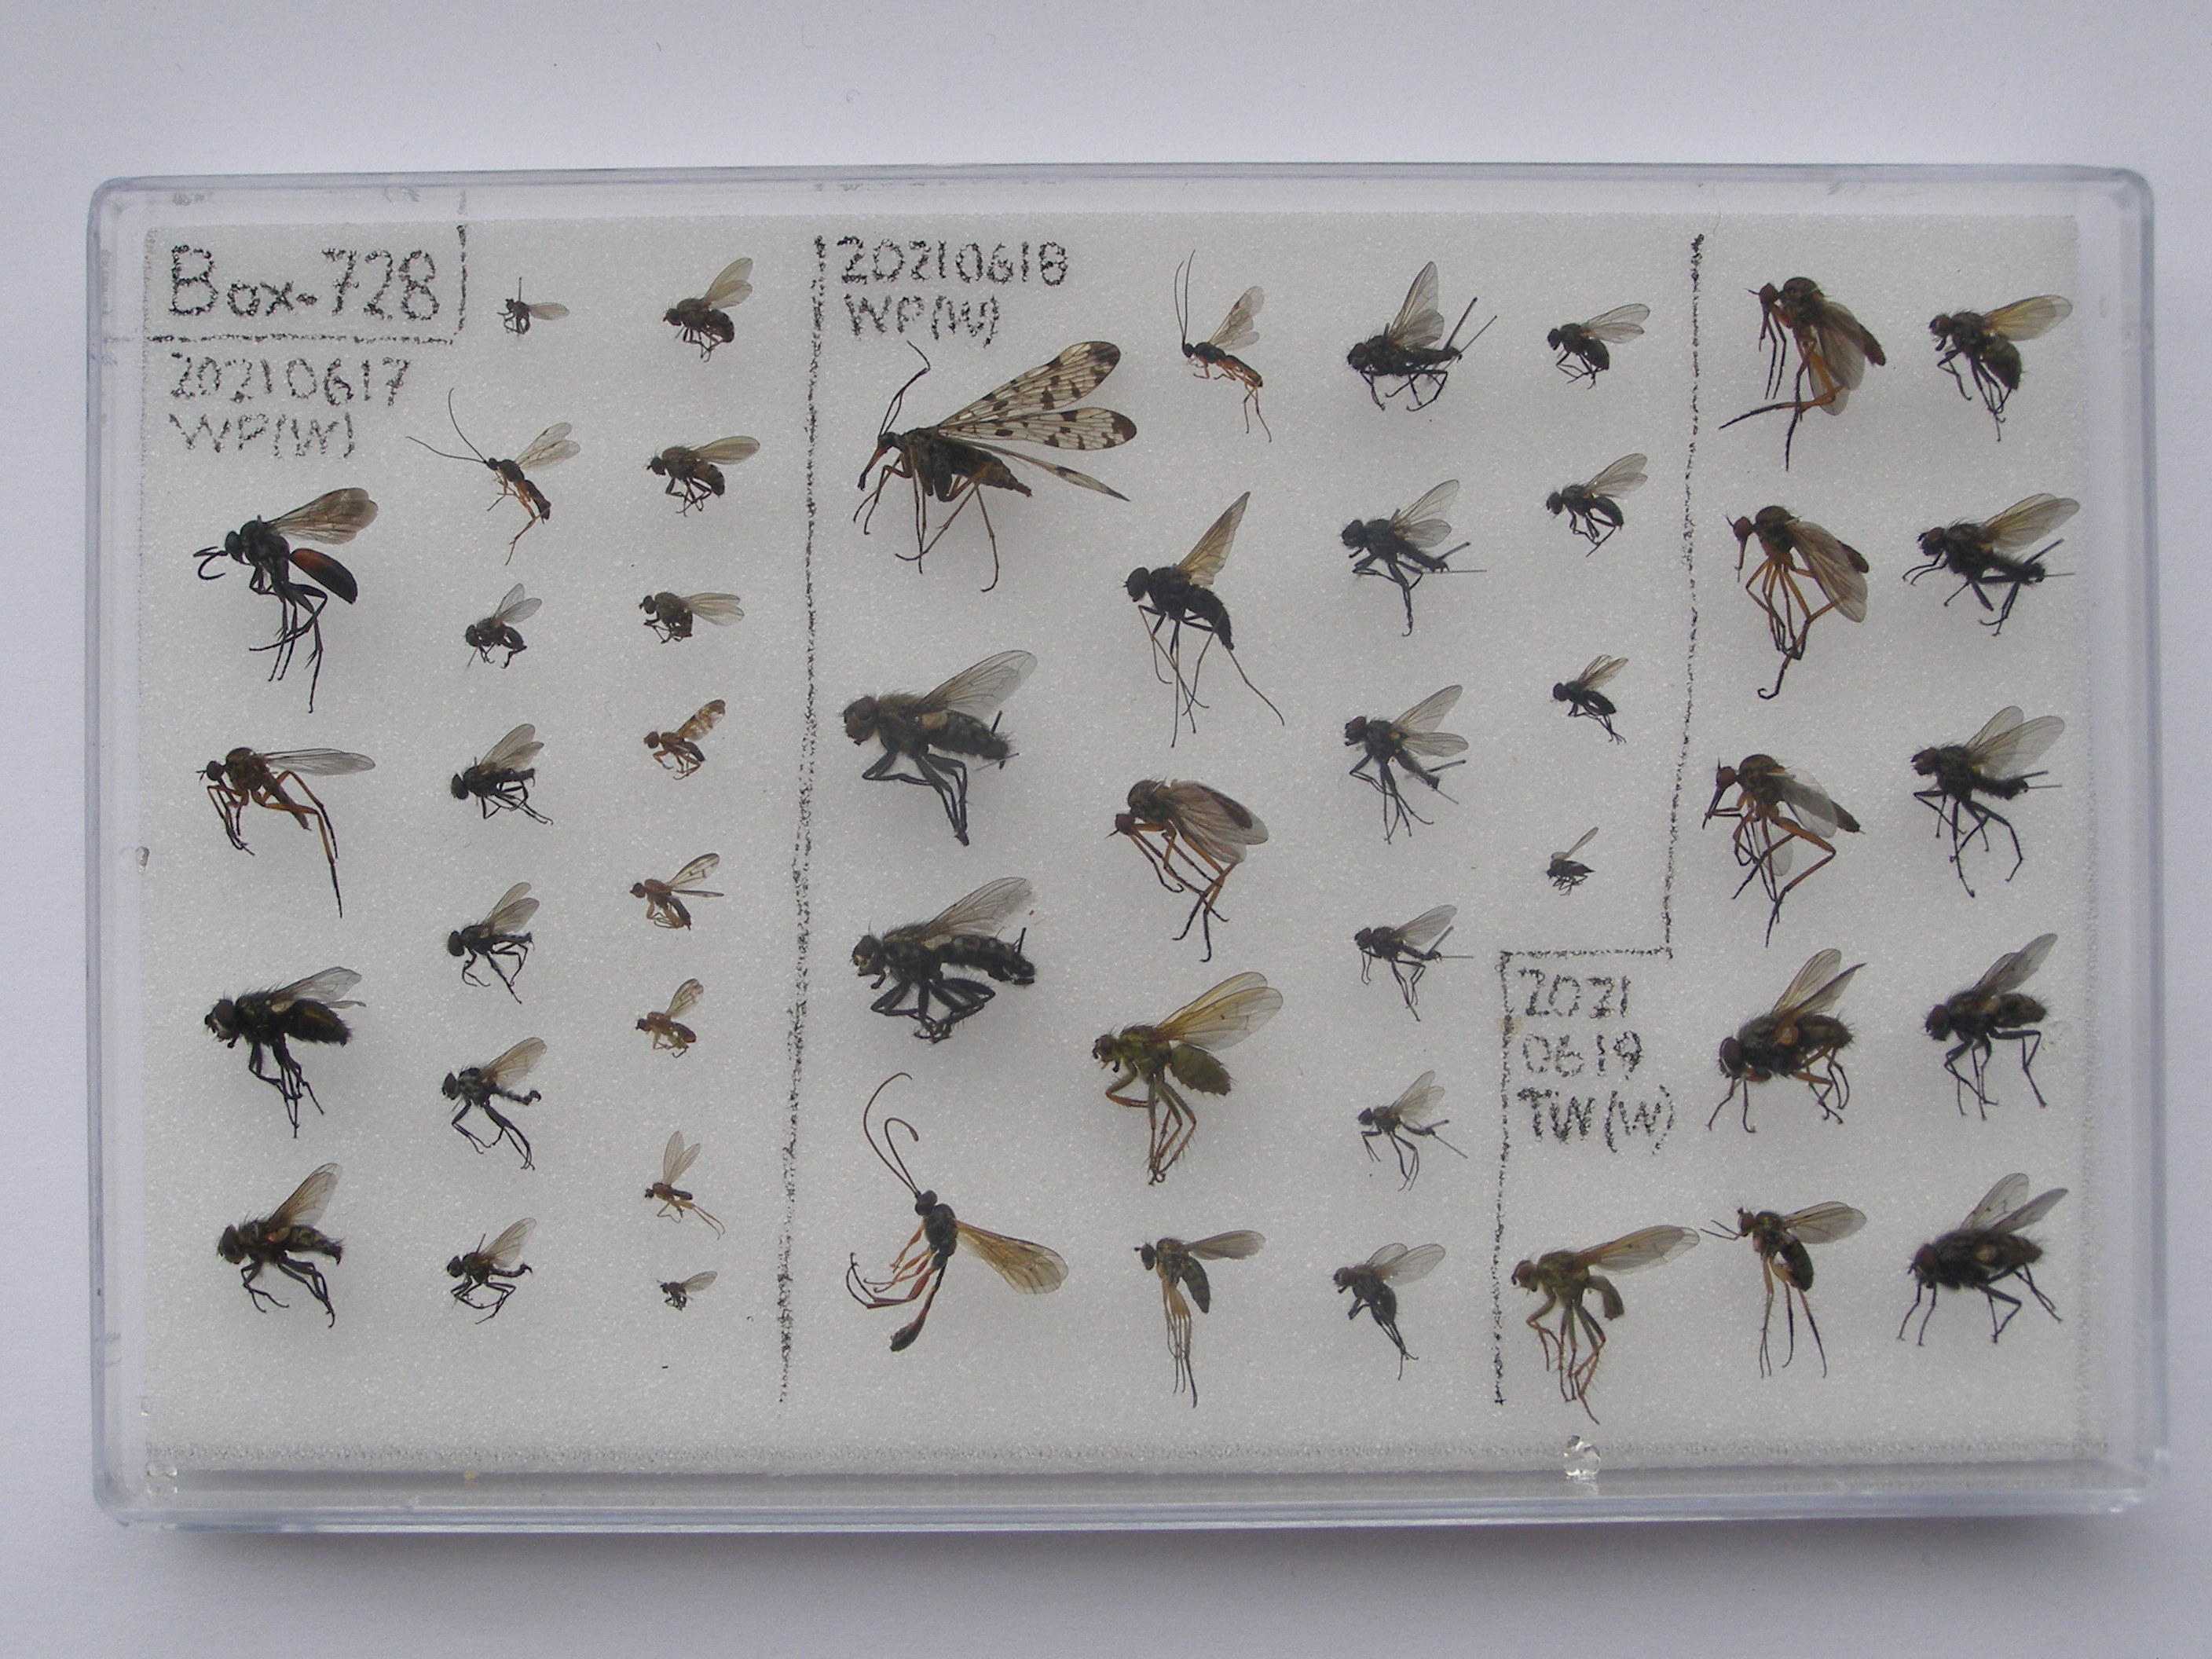 Box-728
20210617
WP(W)
20210618
WP(W)
2021
0619
TW(W)